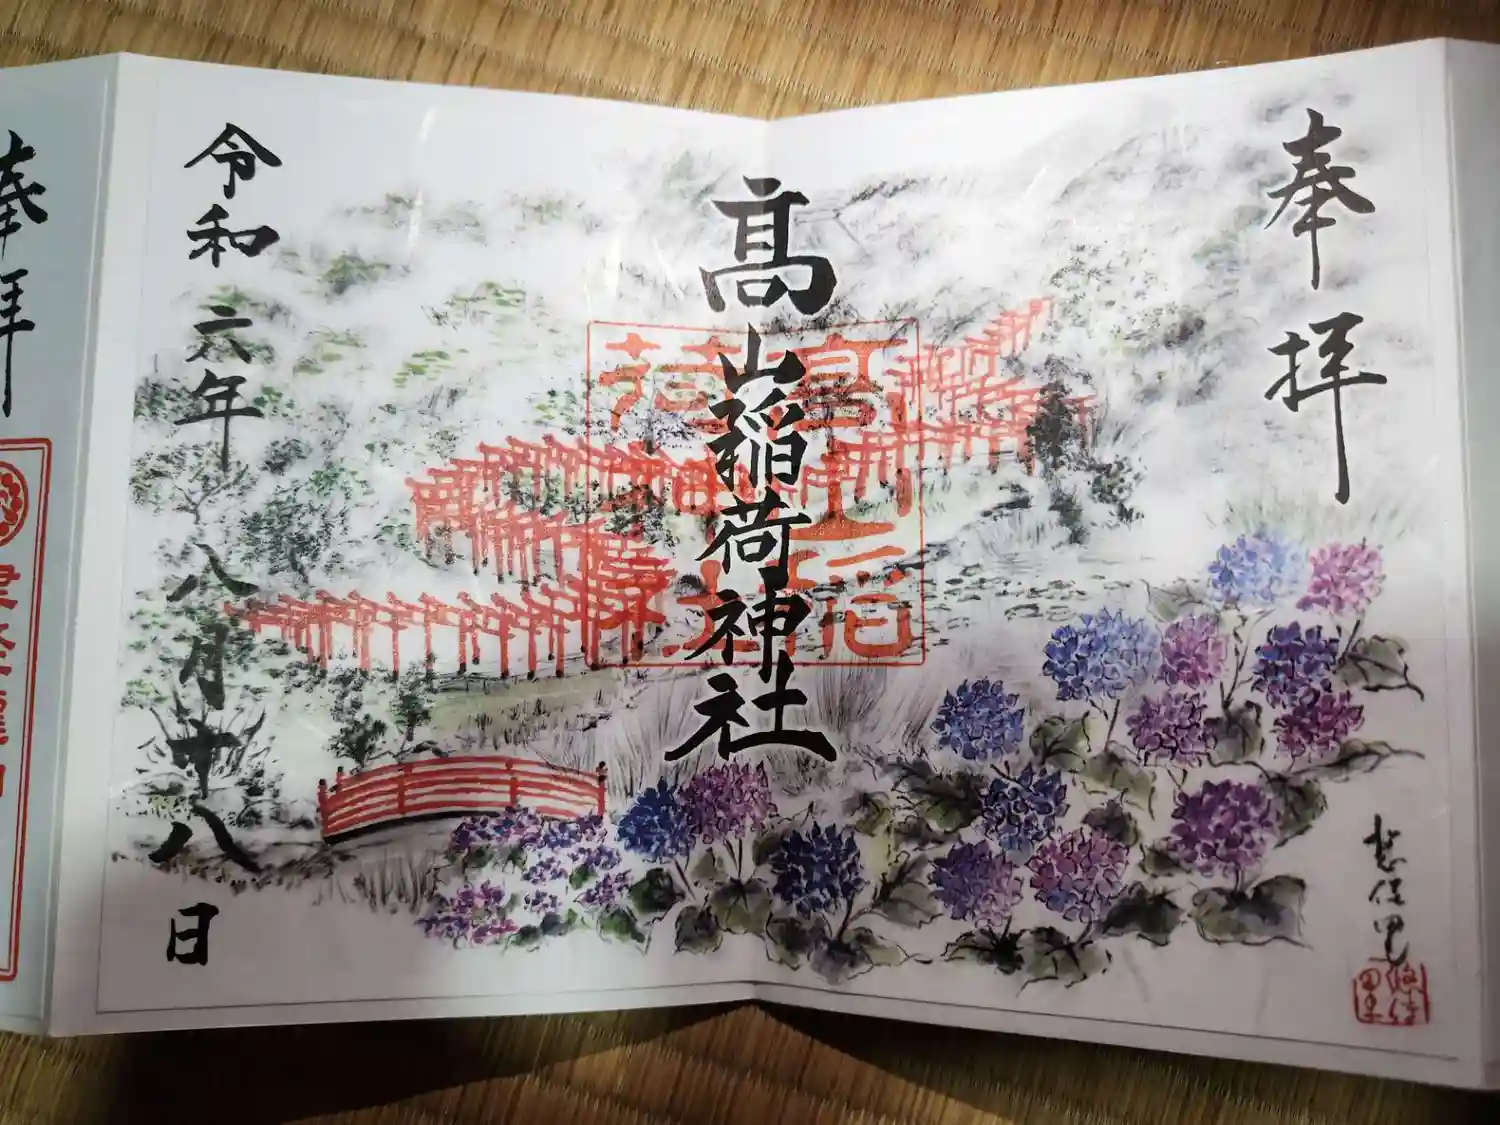 奉拝
髙山稲荷神社
令和六年八月十八日
奉拝